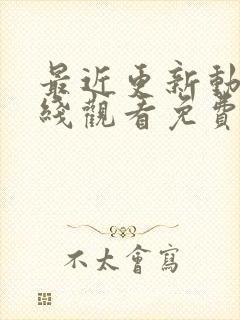 最近更新動
綫觀看免費
不太會寫